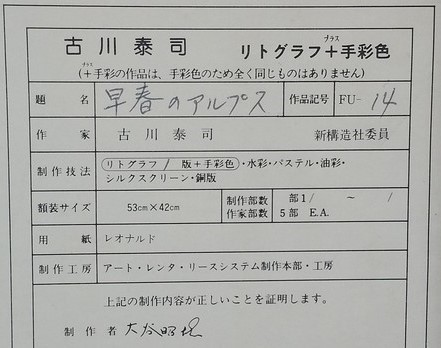 古川泰司 リトグラフ＋手彩色
プラス
(＋手彩の作品は、手彩色のため全く同じものはありません)
プラス
題名 早春のアルプス 作品記号 FU-14
作家 古川泰司 新構造社委員
制作技法 リトグラフ / 版＋手彩色・水彩・パステル・油彩・
シルクスクリーン・銅版
額装サイズ 53cm×42cm 制作部数 部1/ ~ /
作家部数 5部 E.A.
用紙 レオナルド
制作工房 アート・レンタ・リースシステム制作本部・工房
上記の制作内容が正しいことを証明します。
制作者 大谷昭